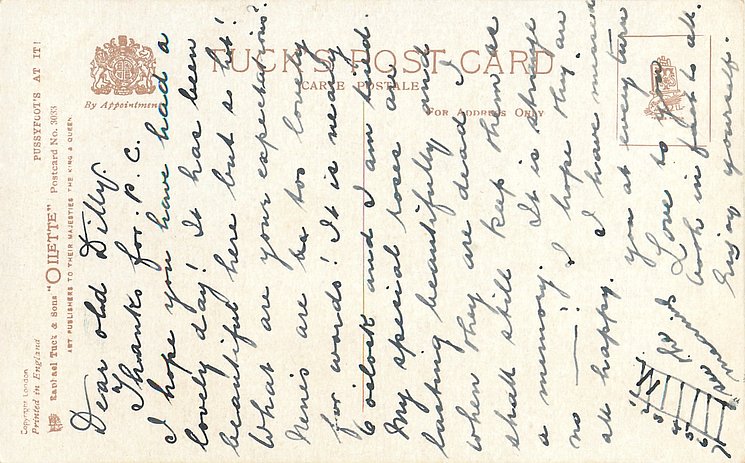 Copyright London
Printed in England
Raphael Tuck & Sons "OILETTE" Postcard No. 3033
PUSSYFOOT'S AT IT!
ART PUBLISHERS TO THEIR MAJESTIES THE KING & QUEEN
By Appointment
TUCK'S POST CARD
CARTE POSTALE
FOR ADDRESS ONLY
Dear old Dilly.
Thanks for p.c.
I hope you have had a
lovely day! It has been
beautiful here but so hot!
What are your expectations?
are too lovely
for words! It is nearly
6 oclock and I am tired.
My special roses are
lasting beautifully and
when they are dead I
shall still keep them as
a memory. It is strange
no — ! I hope they are
all happy. I have missed
you at every turn
Love to you
both in fact to all.
Enjoy yourself.